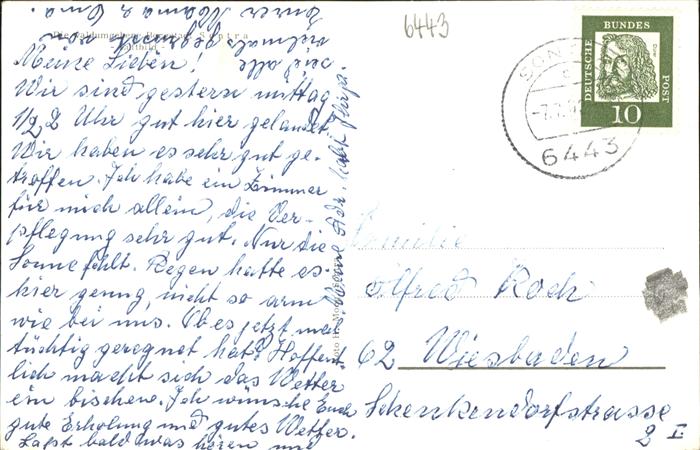 6443
Die waldumgebene Bergstadt Sontra
Luftbild
Meine Lieben!
Wir sind gestern mittag
1/2 2 Uhr gut hier gelandet.
Wir haben es sehr gut ge-
troffen. Ich habe ein Zimmer
für mich allein, die Ver-
pflegung sehr gut. Nur die
Sonne fehlt. Regen hatte es
hier genug, nicht so arm
wie bei uns. Ob es jetzt mal
tüchtig geregnet hat? Hoffent-
lich macht sich das Wetter
ein bischen. Ich wünsche Euch
gute Erholung und gutes Wetter.
Lasst bald was hören und
seid alle
vielmals gegrüsst von
Eurer Mama & Oma
Meine Adr. habt Ihr ja.
DEUTSCHE
BUNDES
POST
Dürer
10
SONTRA
6443
Familie
Alfred Koch
62 Wiesbaden
Schenkendorfstrasse
2 I